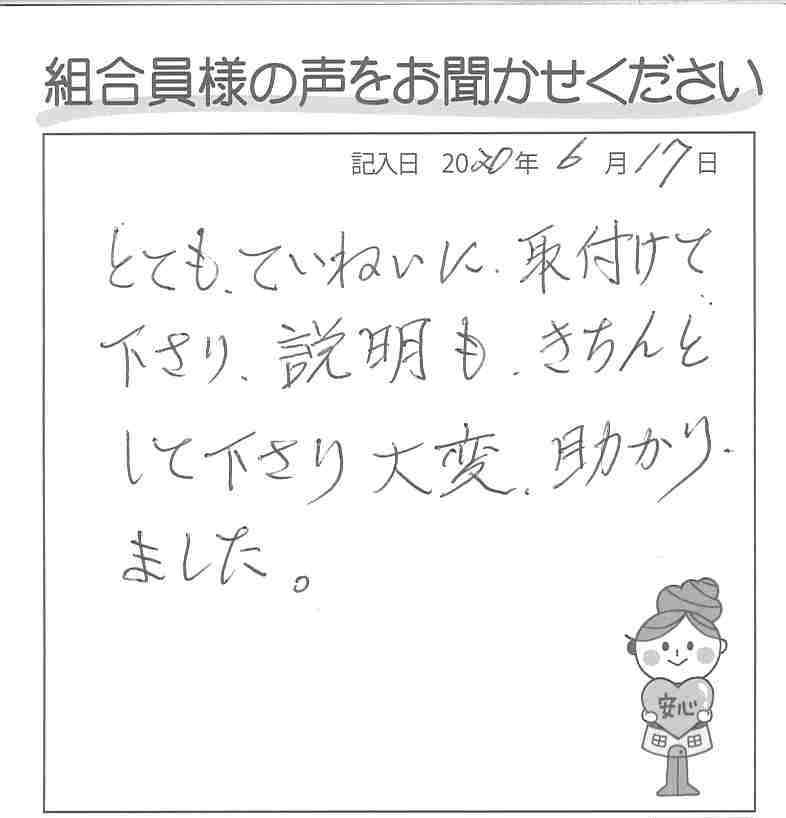 組合員様の声をお聞かせください
記入日 2020年 6月17日
とても、ていねいに、取付けて
下さり、説明も、きちんと
して下さり大変、助かり、
ました。
安心